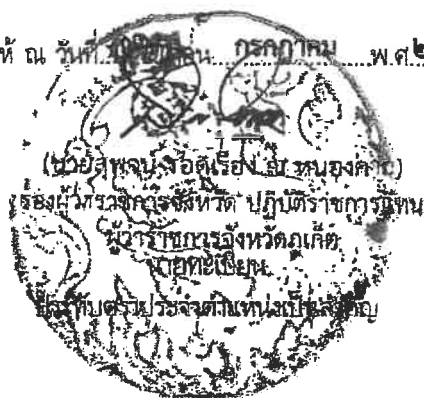 ห้ ณ วันที่ กรกฎาคม พ.ศ.๒
(นายสุพจน์ รอดเรือง ณ หนองคาย)
รองผู้ว่าราชการจังหวัด ปฏิบัติราชการแทน
ผู้ว่าราชการจังหวัดภูเก็ต
นายทะเบียน
ประทับตราประจำตำแหน่งเป็นสำคัญ